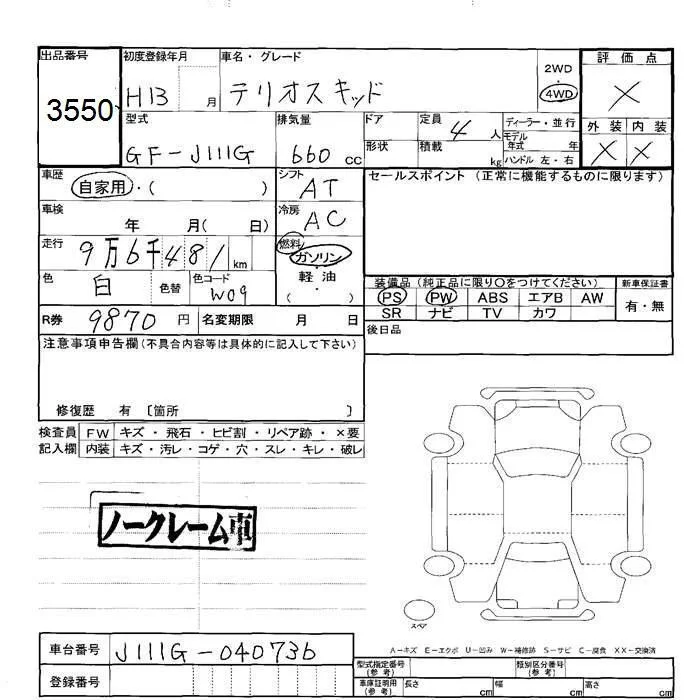 出品番号
3550
初度登録年月
H13 月
車名・グレード
テリオスキッド
2WD
4WD
評価点
×
外装 内装
× ×
型式
GF-J111G
排気量
660 cc
ドア
形状
定員
4 人
積載 kg
ディーラー・並行
モデル年式 年
ハンドル 左・右
車歴
自家用・( )
シフト
AT
セールスポイント (正常に機能するものに限ります)
車検
年 月( 日)
冷房
AC
走行
9万6千481km
燃料
ガソリン・
軽油
・( )
色
白
色替
色コード
W09
装備品(純正品に限り○をつけてください)
PS PW ABS エアB AW
SR ナビ TV カワ
新車保証書
有・無
R券 9870 円
名変期限 月 日
後日品
注意事項申告欄(不具合内容等は具体的に記入して下さい)
修復歴 有 〔箇所 〕
検査員 FW キズ・飛石・ヒビ割・リペア跡・×要
記入欄 内装 キズ・汚レ・コゲ・穴・スレ・キレ・破レ
ノークレーム車
スペア
A-キズ E-エクボ U-凹み W-補修跡 S-サビ C-腐食 XX-交換済
車台番号 J111G-040736
登録番号
型式指定番号(参考)
類別区分番号(参考)
車庫証明用(参考) 長さ cm 幅 cm 高さ cm